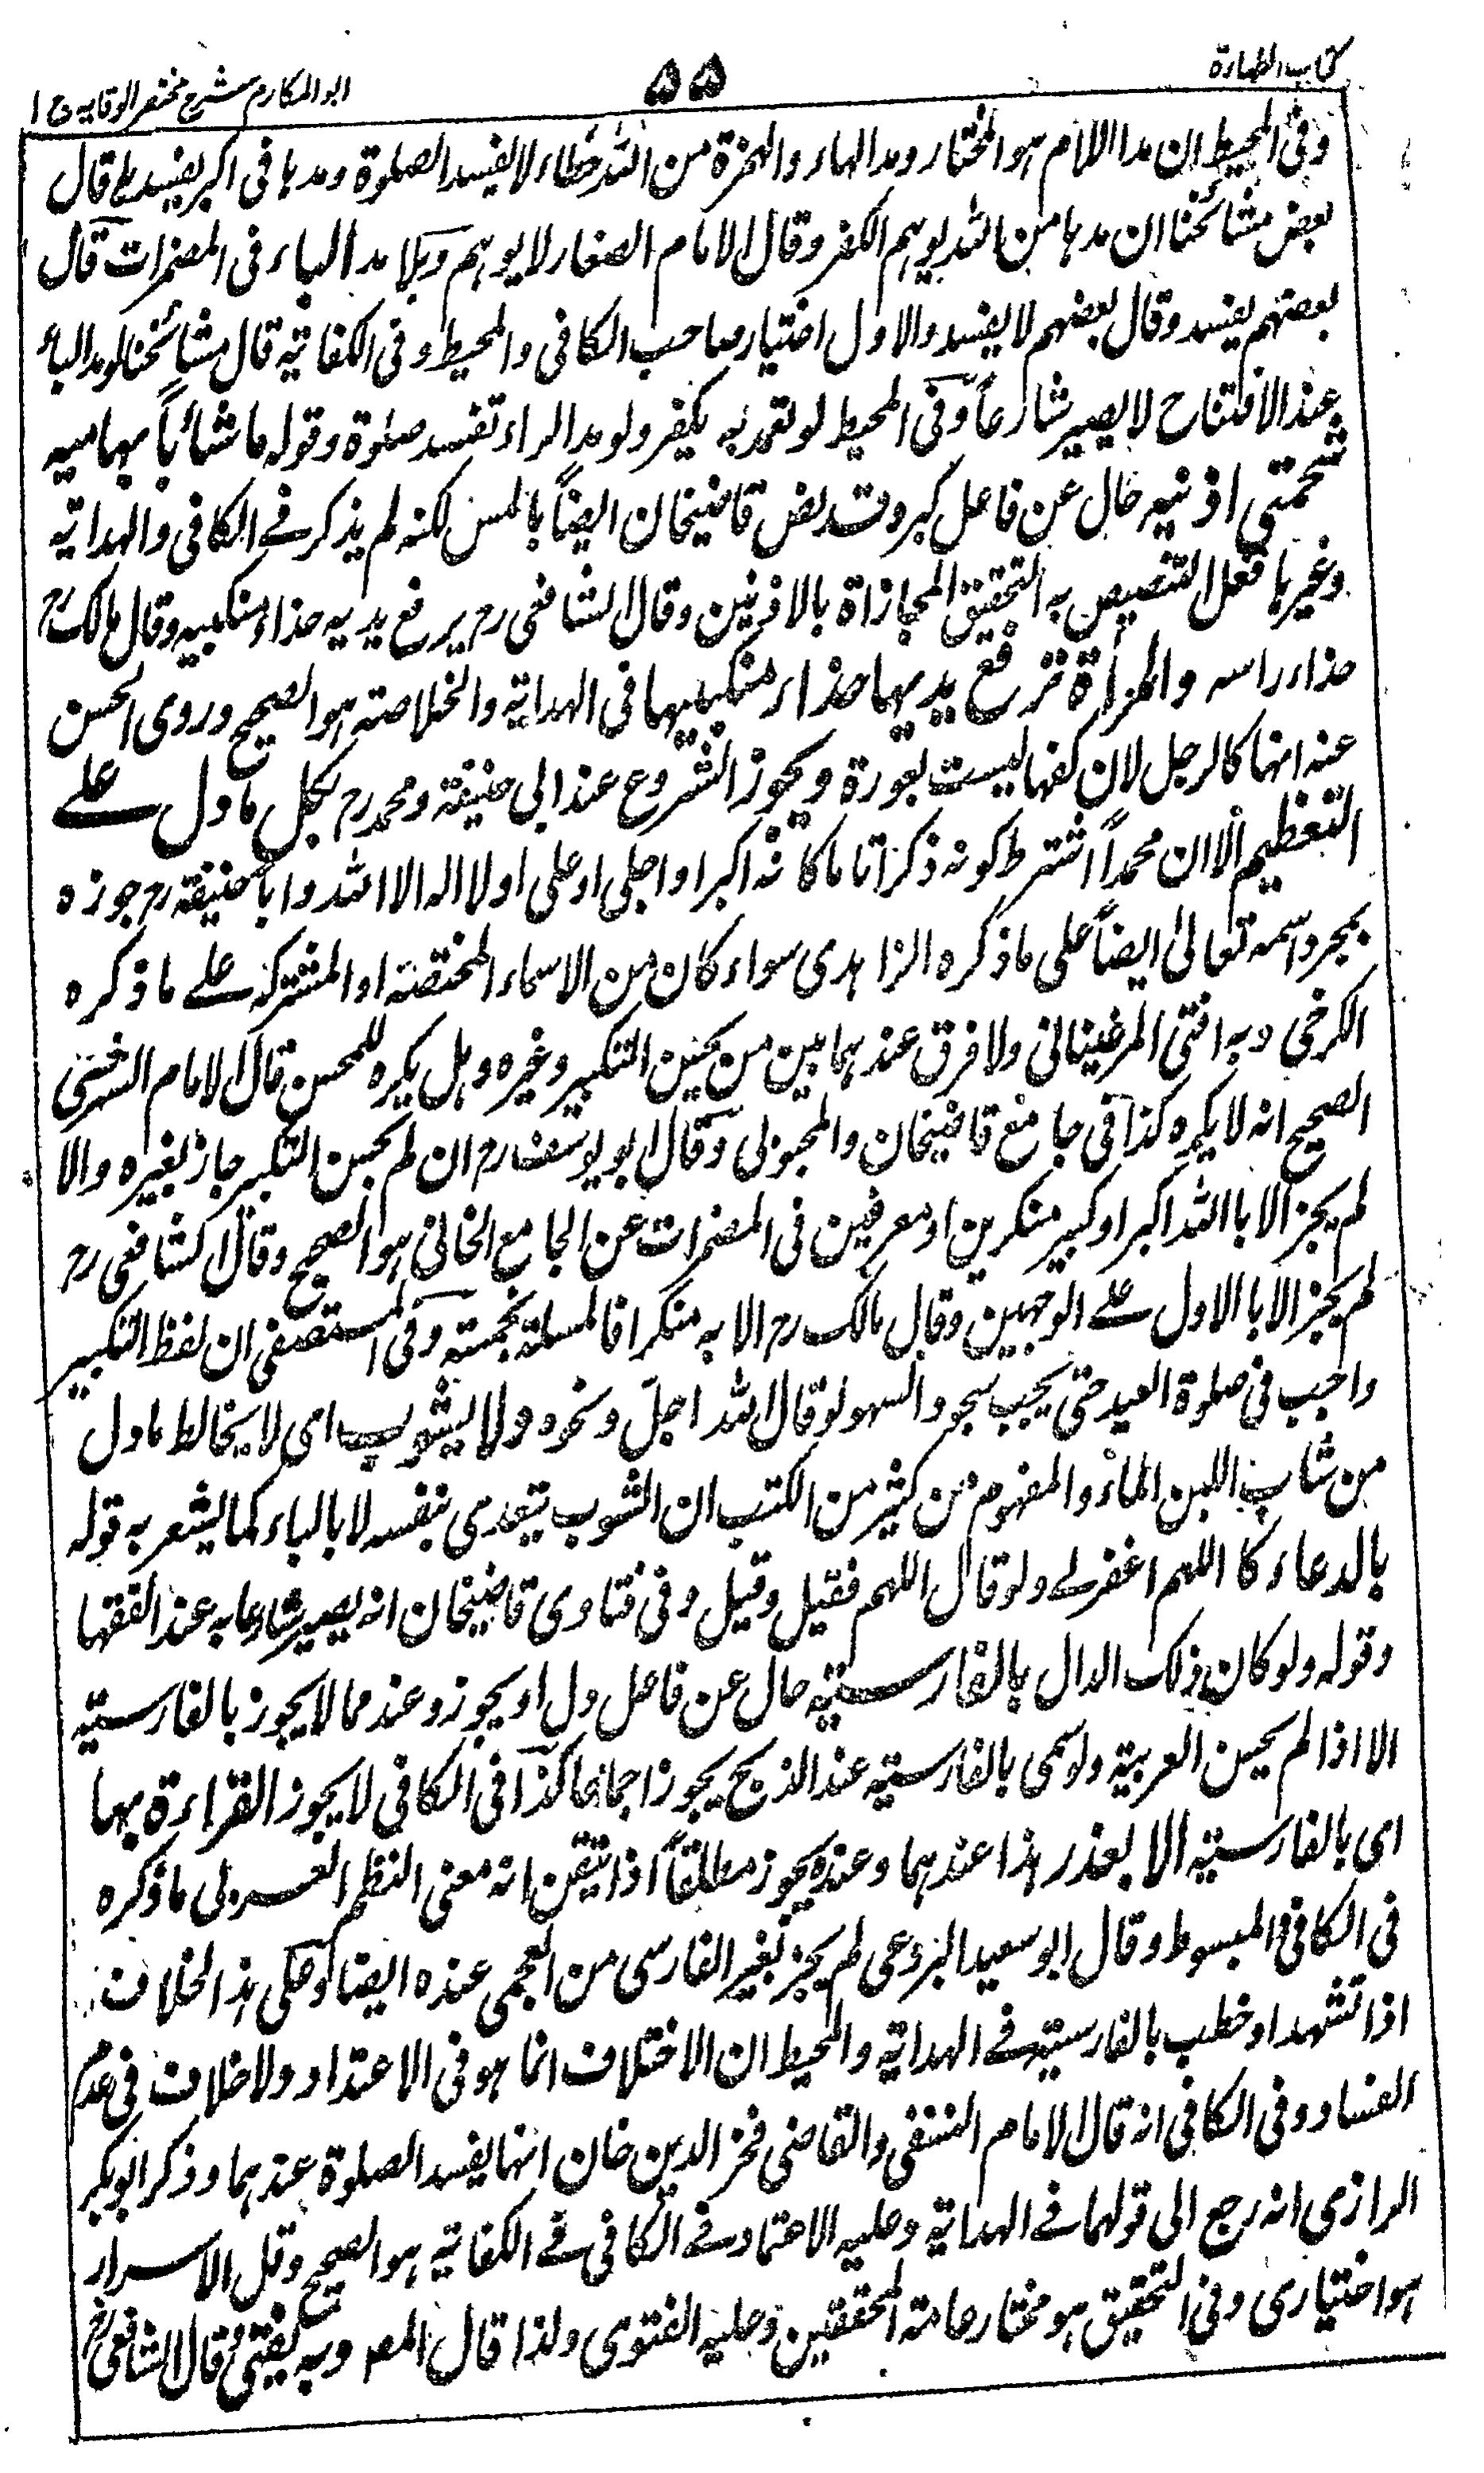 كتاب الطهارة
۵۵
ابو المكارم شرح مختصر الوقايه ج ١
وفى المحيط ان مد اللام هو المختار ومد الهاء والهمزة من الله خطاء لا يفسد الصلوة ومدها فى اكبر يفسد بل قال
بعض مشائخنا ان مدها من الله يوهم الكفر وقال الامام الصفار لا يوهم وبلا مد الباء فى المضمرات قال
بعضهم يفسد وقال بعضهم لا يفسد والاول اختيار صاحب الكافى والمحيط وفى الكفاية قال مشائخنا لو مد الباء
عند الافتتاح لا يصير شارعاً وفى المحيط لو تعمد به يكفر ولو مد الراء تفسد صلوة وقوله ماشائباً بهاميه
شحمتى اذنيه حال عن فاعل كبر وقد نص قاضيخان ايضاً بالمس لكنه لم يذكر فى الكافى والهداية
وغيرها فعل التنصيص به التحقيق المجازاة بالاذنين وقال الشافعى رح يرفع يديه حذاء منكبيه وقال مالك رح
حذاء راسه والمرأة ترفع يديها حذاء منكبيها فى الهداية والخلاصة هو الصحيح وروى الحسن
عنه انها كالرجل لان كفها ليست بعورة ويجوز الشروع عند ابى حنيفة ومحمد رح بكل ما دل على
التعظيم الا ان محمداً اشترط كونه ذكرا تاما كانه اكبر او اجلى او على او لا اله الا الله وابا حنيفة رح جوزه
بمجرد اسمه تعالى ايضاً على ما ذكره الزاهدى سواء كان من الاسماء المختصة او المشتركة على ما ذكره
الكرخى وبه افتى المرغينانى ولا فرق عندهما بين من يحسن التكبير وغيره وهل يكره للمحسن قال الامام السرخسى
الصحيح انه لا يكره كذا فى جامع قاضيخان والمحبوبى وقال ابو يوسف رح ان لم يحسن التكبير جاز بغيره والا
لم يجز الا بالله اكبر او كبير منكرين او معرفين فى المضمرات عن الجامع الخانى هو الصحيح وقال الشافعى رح
لم يجز الا بالاول على الوجهين وقال مالك رح الا به منكرا فالمسئلة مخمسة وفى المستصفى ان لفظ التكبير
واجب فى صلوة العيد حتى يجب سجود السهو لو قال الله اجل ونحوه ولا يشوب اى لا يخالط ما دل
من شاب اللبن الماء والمفهوم من كثير من الكتب ان الشوب يتعدى بنفسه لا بالباء كما يشعر به قوله
بالدعاء كا اللهم اغفر لى ولو قال اللهم فقيل وقيل وفى فتاوى قاضيخان انه يصير شارعا به عند الفقها
وقوله ولو كان ذلك الدال بالفارسية حال عن فاعل دل او يجوز وعندهما لا يجوز بالفارسية
الا اذا لم يحسن العربية ولو سمى بالفارسية عند الذبح يجوز اجماعا كذا فى الكافى لا يجوز القراءة بها
اى بالفارسية الا بعذر هذا عندهما وعنده يجوز مطلقاً اذا تيقن انه معنى النظم العربى ما ذكره
فى الكافى المبسوط وقال ابو سعيد البردعى لم يجز بغير الفارسى من العجمى عنده ايضا وحكى هذا الخلاف
اذا تشهد او خطب بالفارسية فى الهداية والمحيط ان الاختلاف انما هو فى الاعتداد ولا خلاف فى عدم
الفساد وفى الكافى انه قال الامام النسفى والقاضى فخر الدين خان انها يفسد الصلوة عندهما وذكر ابو بكر
الرازى انه رجع الى قولهما فى الهداية وعليه الاعتماد فى الكافى فى الكفاية هو الصحيح وقل الاسرار
هو اختيارى وفى التحقيق هو مختار عامة المحققين وعليه الفتوى ولذا قال المص وبه يفتى وقال الشافعى رح